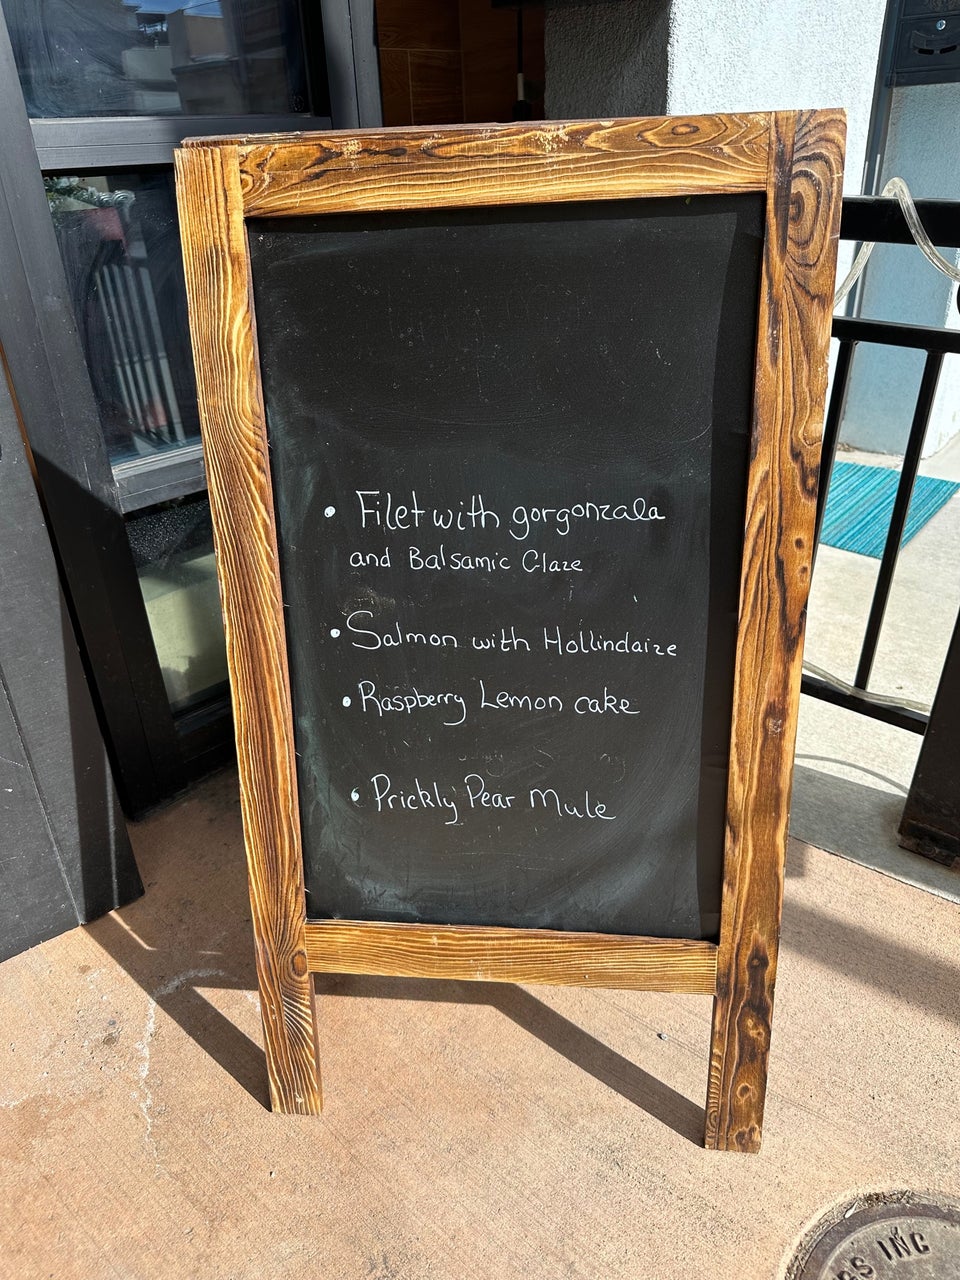 • Filet with gorgonzala
and Balsamic Glaze
• Salmon with Hollindaize
• Raspberry Lemon cake
• Prickly Pear Mule
INC